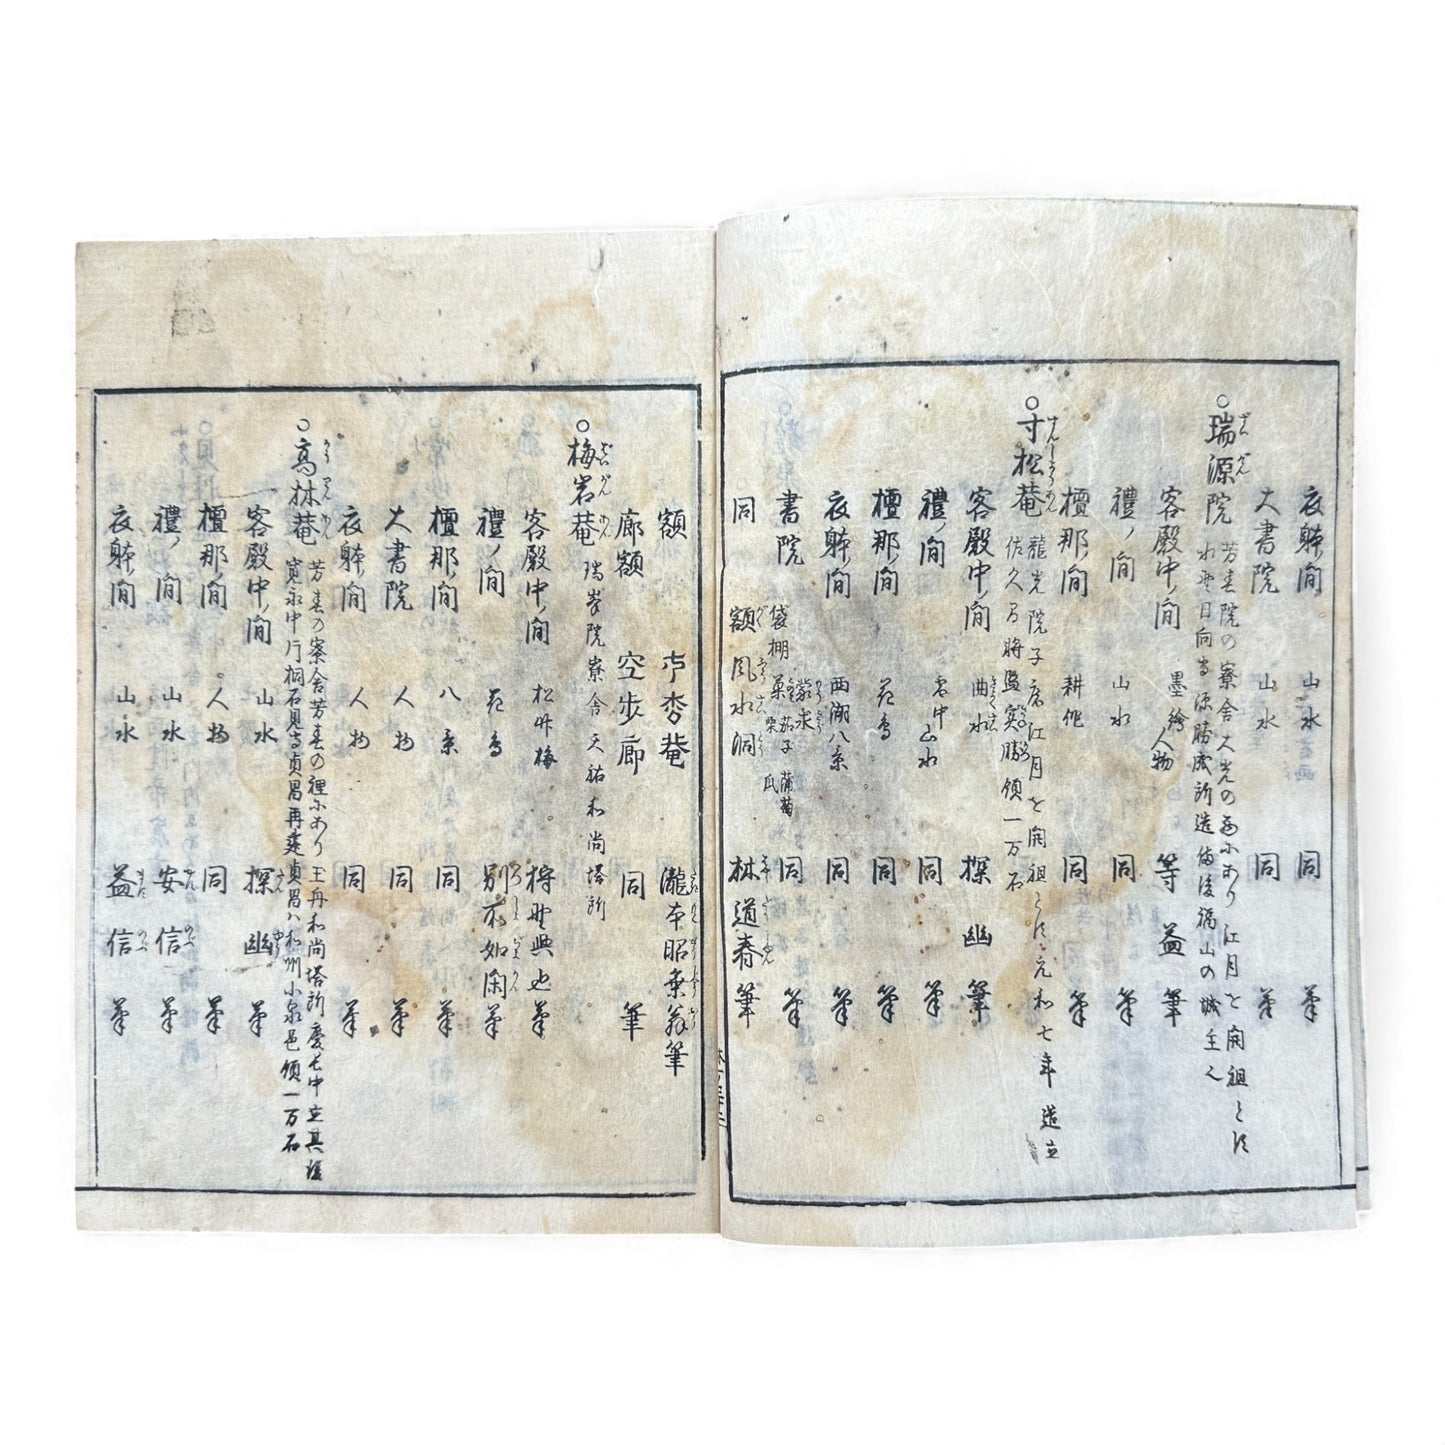 衣躰ノ間 山水 同 筆
大書院 山水 同 筆
○瑞源院 芳春院の寮舎大光の西にあり江月を開祖とす
水野日向守源勝成所造備後福山の城主也
客殿中ノ間 墨繪人物 等益 筆
禮ノ間 山水 同 筆
檀那ノ間 耕作 同 筆
○寸松菴 龍光院子房江月を開祖とす元和七年造立
佐久間将監実勝領一万石
客殿中ノ間 曲水 探幽 筆
禮ノ間 雪中山水 同 筆
檀那ノ間 花鳥 同 筆
衣躰ノ間 西湖八景 同 筆
書院 袋棚 菓 栗 茄子 瓜 葡萄 同 筆
同 額 風水洞 林道春 筆
額 菴 瀧本昭乗翁筆
廊額 空歩廊 同 筆
○梅岩菴 瑞峯院寮舎天祐和尚塔所
客殿中ノ間 松竹梅 狩野興也筆
禮ノ間 花鳥 別所如閑筆
檀那ノ間 八景 同 筆
大書院 人物 同 筆
衣躰ノ間 人物 同 筆
○高林菴 芳春の寮舎芳春の裡にあり玉舟和尚塔所慶長中立其後
寛永中片桐石見守貞昌再建貞昌ハ和州小泉邑領一万石
客殿中ノ間 山水 探幽 筆
檀那ノ間 人物 同 筆
禮ノ間 山水 安信 筆
衣躰ノ間 山水 益信 筆